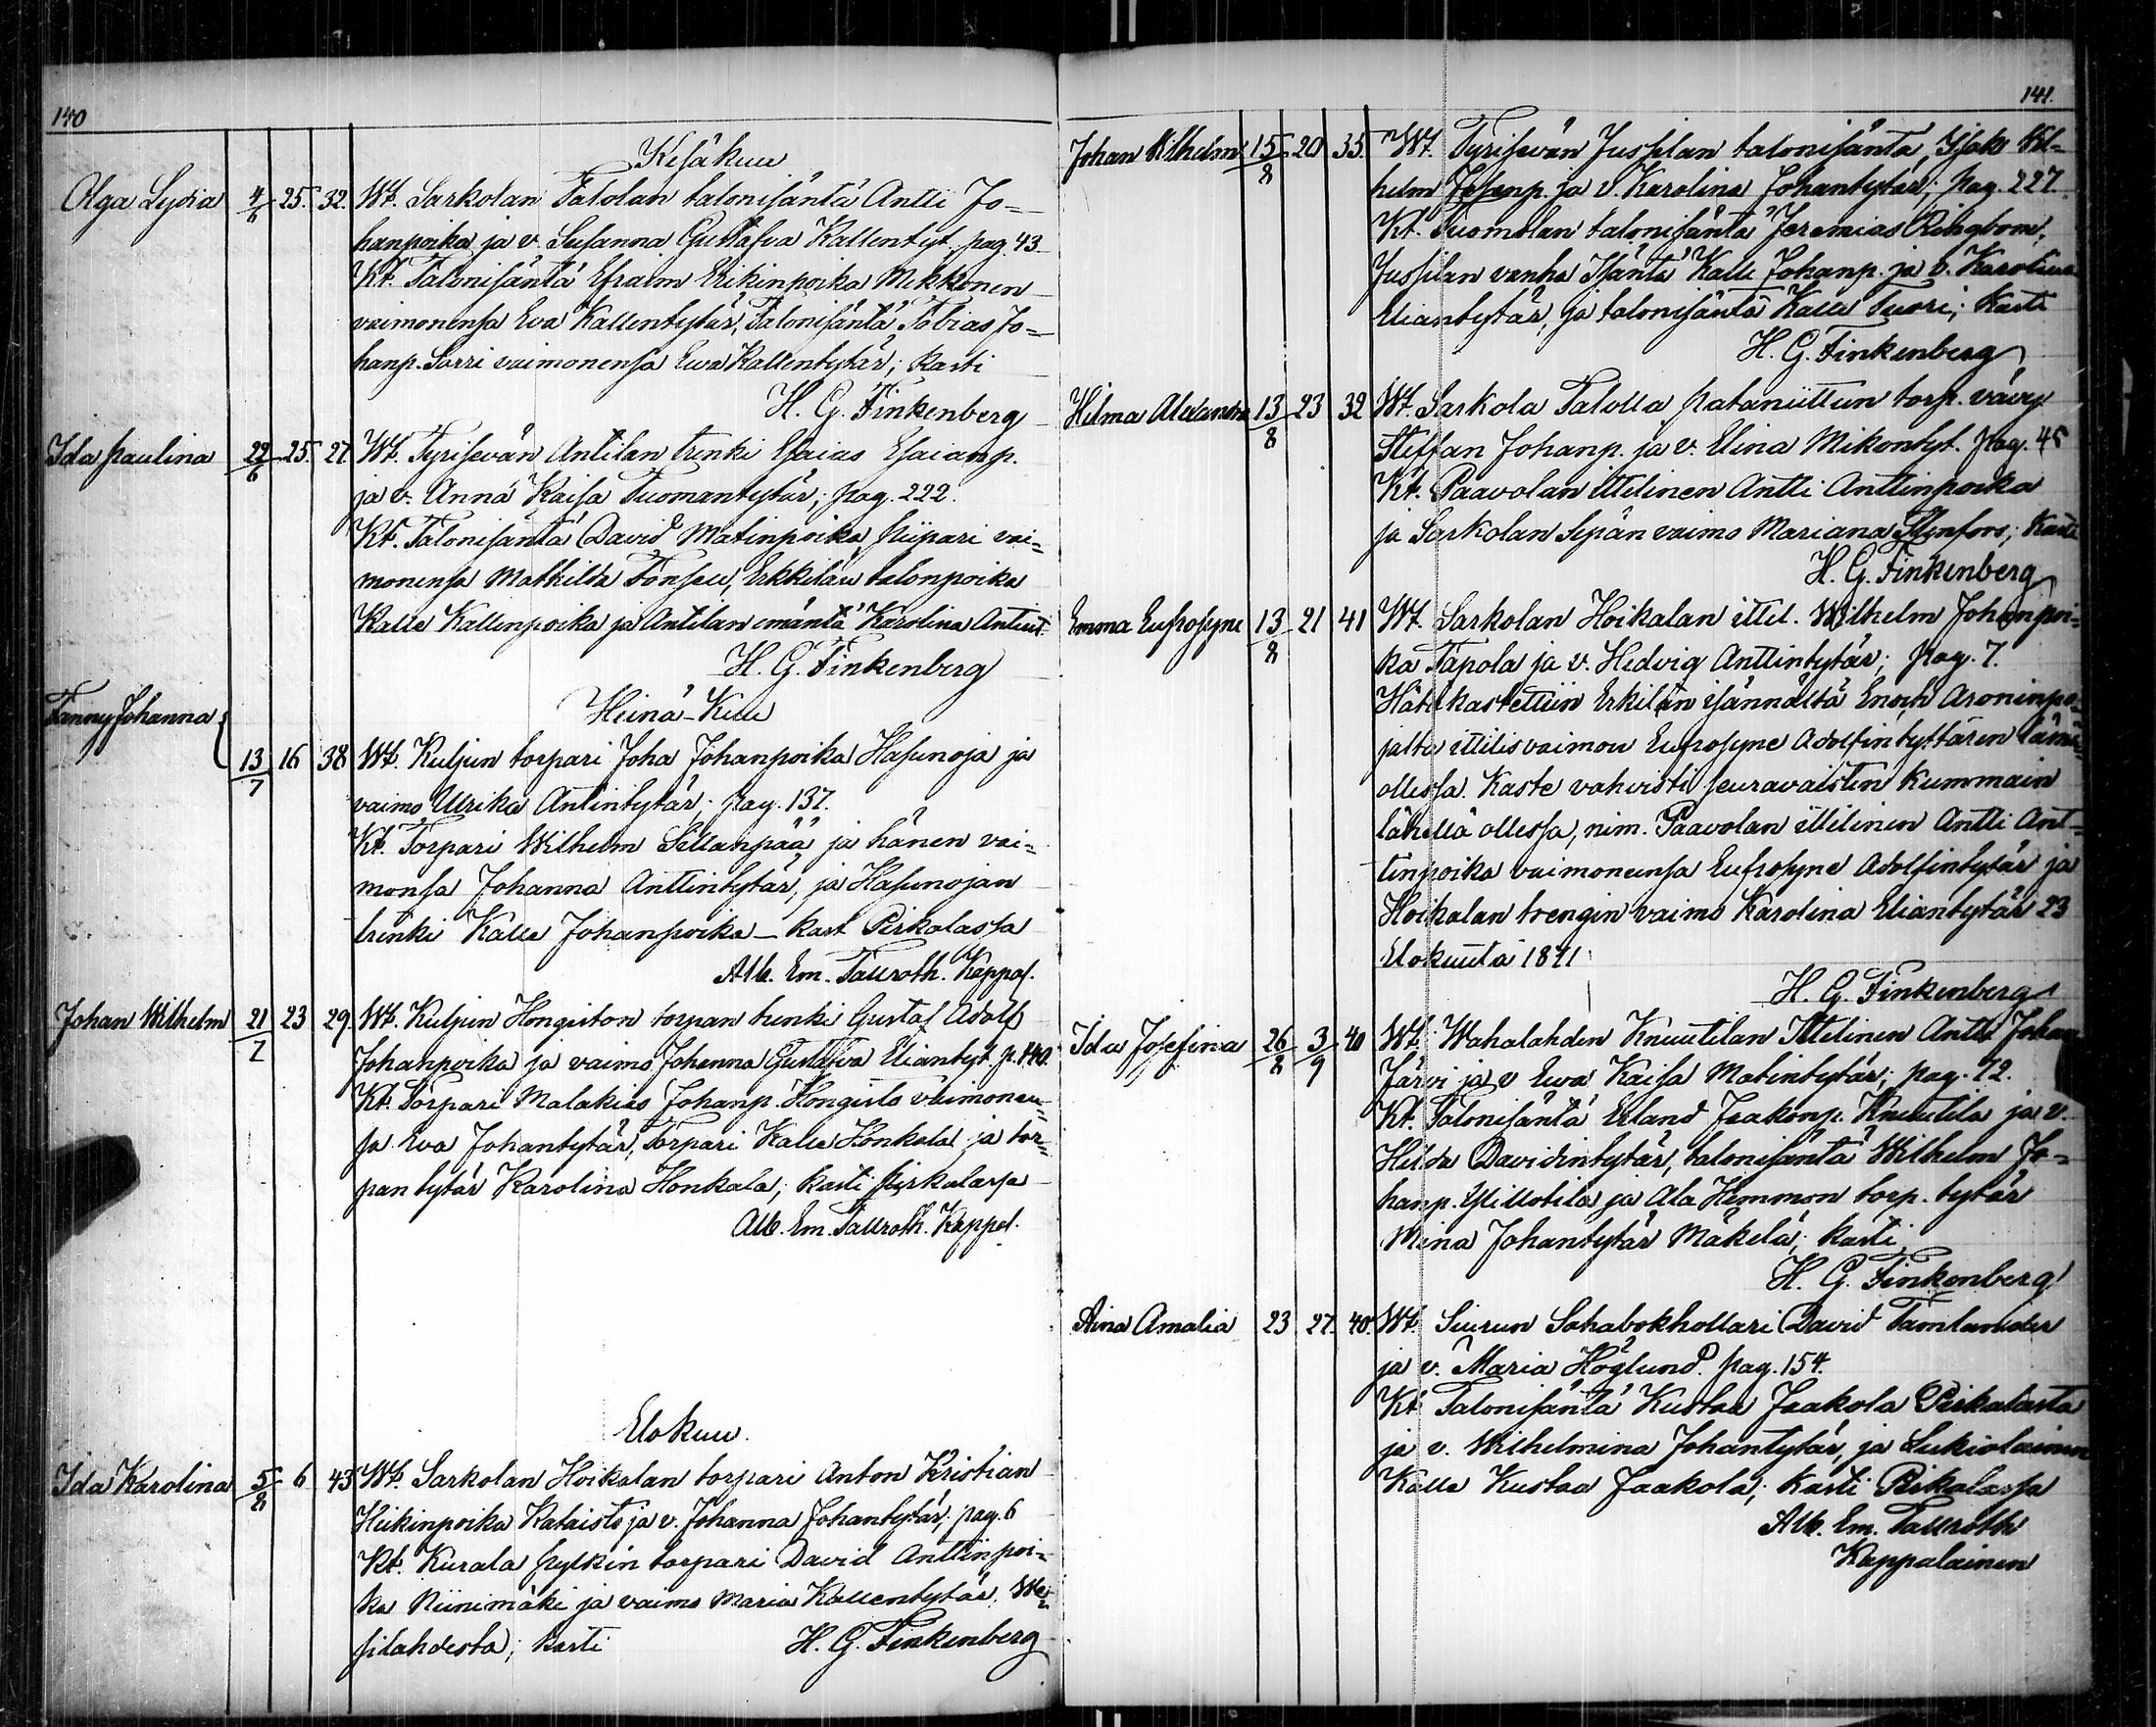 140
Kesäkuu
Olga Lydia 4/6 25. 32. Wt. Sarkolan Talolan talonisäntä Antti Jo=
hanpoika ja v. Susanna Gustafva Kallentyt. pag. 43
Kt. Talonisäntä Efraim Erikinpoika Mikkonen
vaimonensa Eva Kallentytär, Talonisäntä Tobias Jo=
hanp. Sorri vaimonensa Ewa Kallentytär; kasti
H. G. Finkenberg
Ida paulina 22/6 25. 27. Wt. Tyrisevän Antilan trenki Esaias Esaianp.
ja v. Anna Kaisa Tuomantytär; pag. 222.
Kt. Talonisäntä David Matinpoika piipari vai=
monensa Mathilda Tonseu, Erkkilän talonpoika
Kalle Kallenpoika ja Antilan emäntä Karolina Antint
H. G. Finkenberg
Heinä-Kuu
Fanny Johanna
13/7 16 38 Wt. Kuljun torpari Joha Johanpoika Hasunoja ja
vaimo Ulrika Antintytär; pag. 137.
Kt. Torpari Wilhelm Sillanpää ja hänen vai=
monsa Johanna Anttintytär, ja Hasunojan
trenki Kalle Johanpoika – kast Pirkalassa
Alb. Em. Tallroth. Kappal.
Johan Wilhelm 21/7 23 29. Wt. Kuljun Hongiston torpan trenki Gustaf Adolf
Johanpoika ja vaimo Johanna Gustafva Eliantyt. p. 140.
Kt. Torpari Malakias Johanp. Hongisto vaimonen=
sa Eva Johantytär, Torpari Kalle Honkala ja tor=
pan tytär Karolina Honkala; kasti pirkalassa
Alb. Em. Tallroth. Kappel.
Elokuu.
Ida Karolina 5/8 6 43 Wt. Sarkolan Hoikalan torpari Anton Kristian
Heikinpoika Kataisto ja v. Johanna Johantytär; pag. 6
Kt. Kurala pylkin torpari David Anttinpoi=
ka Niinimäki ja vaimo Maria Kallentytär. We=
silahdesta; kasti H. G. Finkenberg
141.
Johan Wilhelm 15/8 20 35. Wt. Tyrisevän Jussilan talonisäntä, Isjak Wil=
helm Josenp. ja v. Karolina Johantytär; pag. 227.
Kt. Tuomolan talonisäntä Jeremias Ringbom,
Jussilan vanha Isäntä Kalle Johanp. ja v. Karolina
Eliantytär, ja talonisäntä Kalle Tuori; Kasti
H. G. Finkenberg
Hilma Alexandra 13/8 23 32 Wt. Sarkola Talolla patanüttun torp. vävy
Steffan Johanp. ja v. Elina Mikontyt. pag. 45
Kt. Paavolan ittilinen Antti Anttinpoika
ja Sarkolan Sepän vaimo Mariana Stenfors; Kasti
H. G. Finkenberg
Emma Eufrosyne 13/8 21 41 Wt. Sarkolan Hoikalan ittel. Wilhelm Johanpoi=
ka Tapola ja v. Hedvig Anttintytär; pag. 7.
Hätäkastettiin Erkilän isännältä Enoch Aroninpo=
jalta ittilisvaimon Eufrosyne Adolfintyttären läsnä=
ollessa. Kaste vahvisti seuravaisten kummain
lähellä ollessa, nim. Paavolan ittilinen Antti Ant=
tinpoika vaimonensa Eufrosyne Adolfintytär ja
Hoikalan trengin vaimo Karolina Eliantytär 23
Elokuuta 1871.
H. G. Finkenberg
Ida Josefina 26/8 3/9 40 Wt. Wahalahden Knuutilan Ittelinen Antti Johan
Järvi ja v Ewa Kaisa Matintytär; pag. 72.
Kt. Talonisäntä Erland Jaakonp. Knuutila ja v.
Hilda Davidintytär, talonisäntä Wilhelm Jo=
hanp. Yllotila ja Ala Hemmon torp. tytär
Mina Johantytär Mäkelä; kasti
H. G. Finkenberg
Aina Amalia 23 27. 40. Wt. Siurun Sahabokhollari David Tamlander
ja v. Maria Höglund. pag. 154.
Kt. Talonisäntä Kustaa Jaakola Pirkalasta
ja v. Wilhelmina Johantytär, ja Lukiolainen
Kalle Kustaa Jaakola; kasti Pirkalassa
Alb. Em. Tallroth
Kappalainen